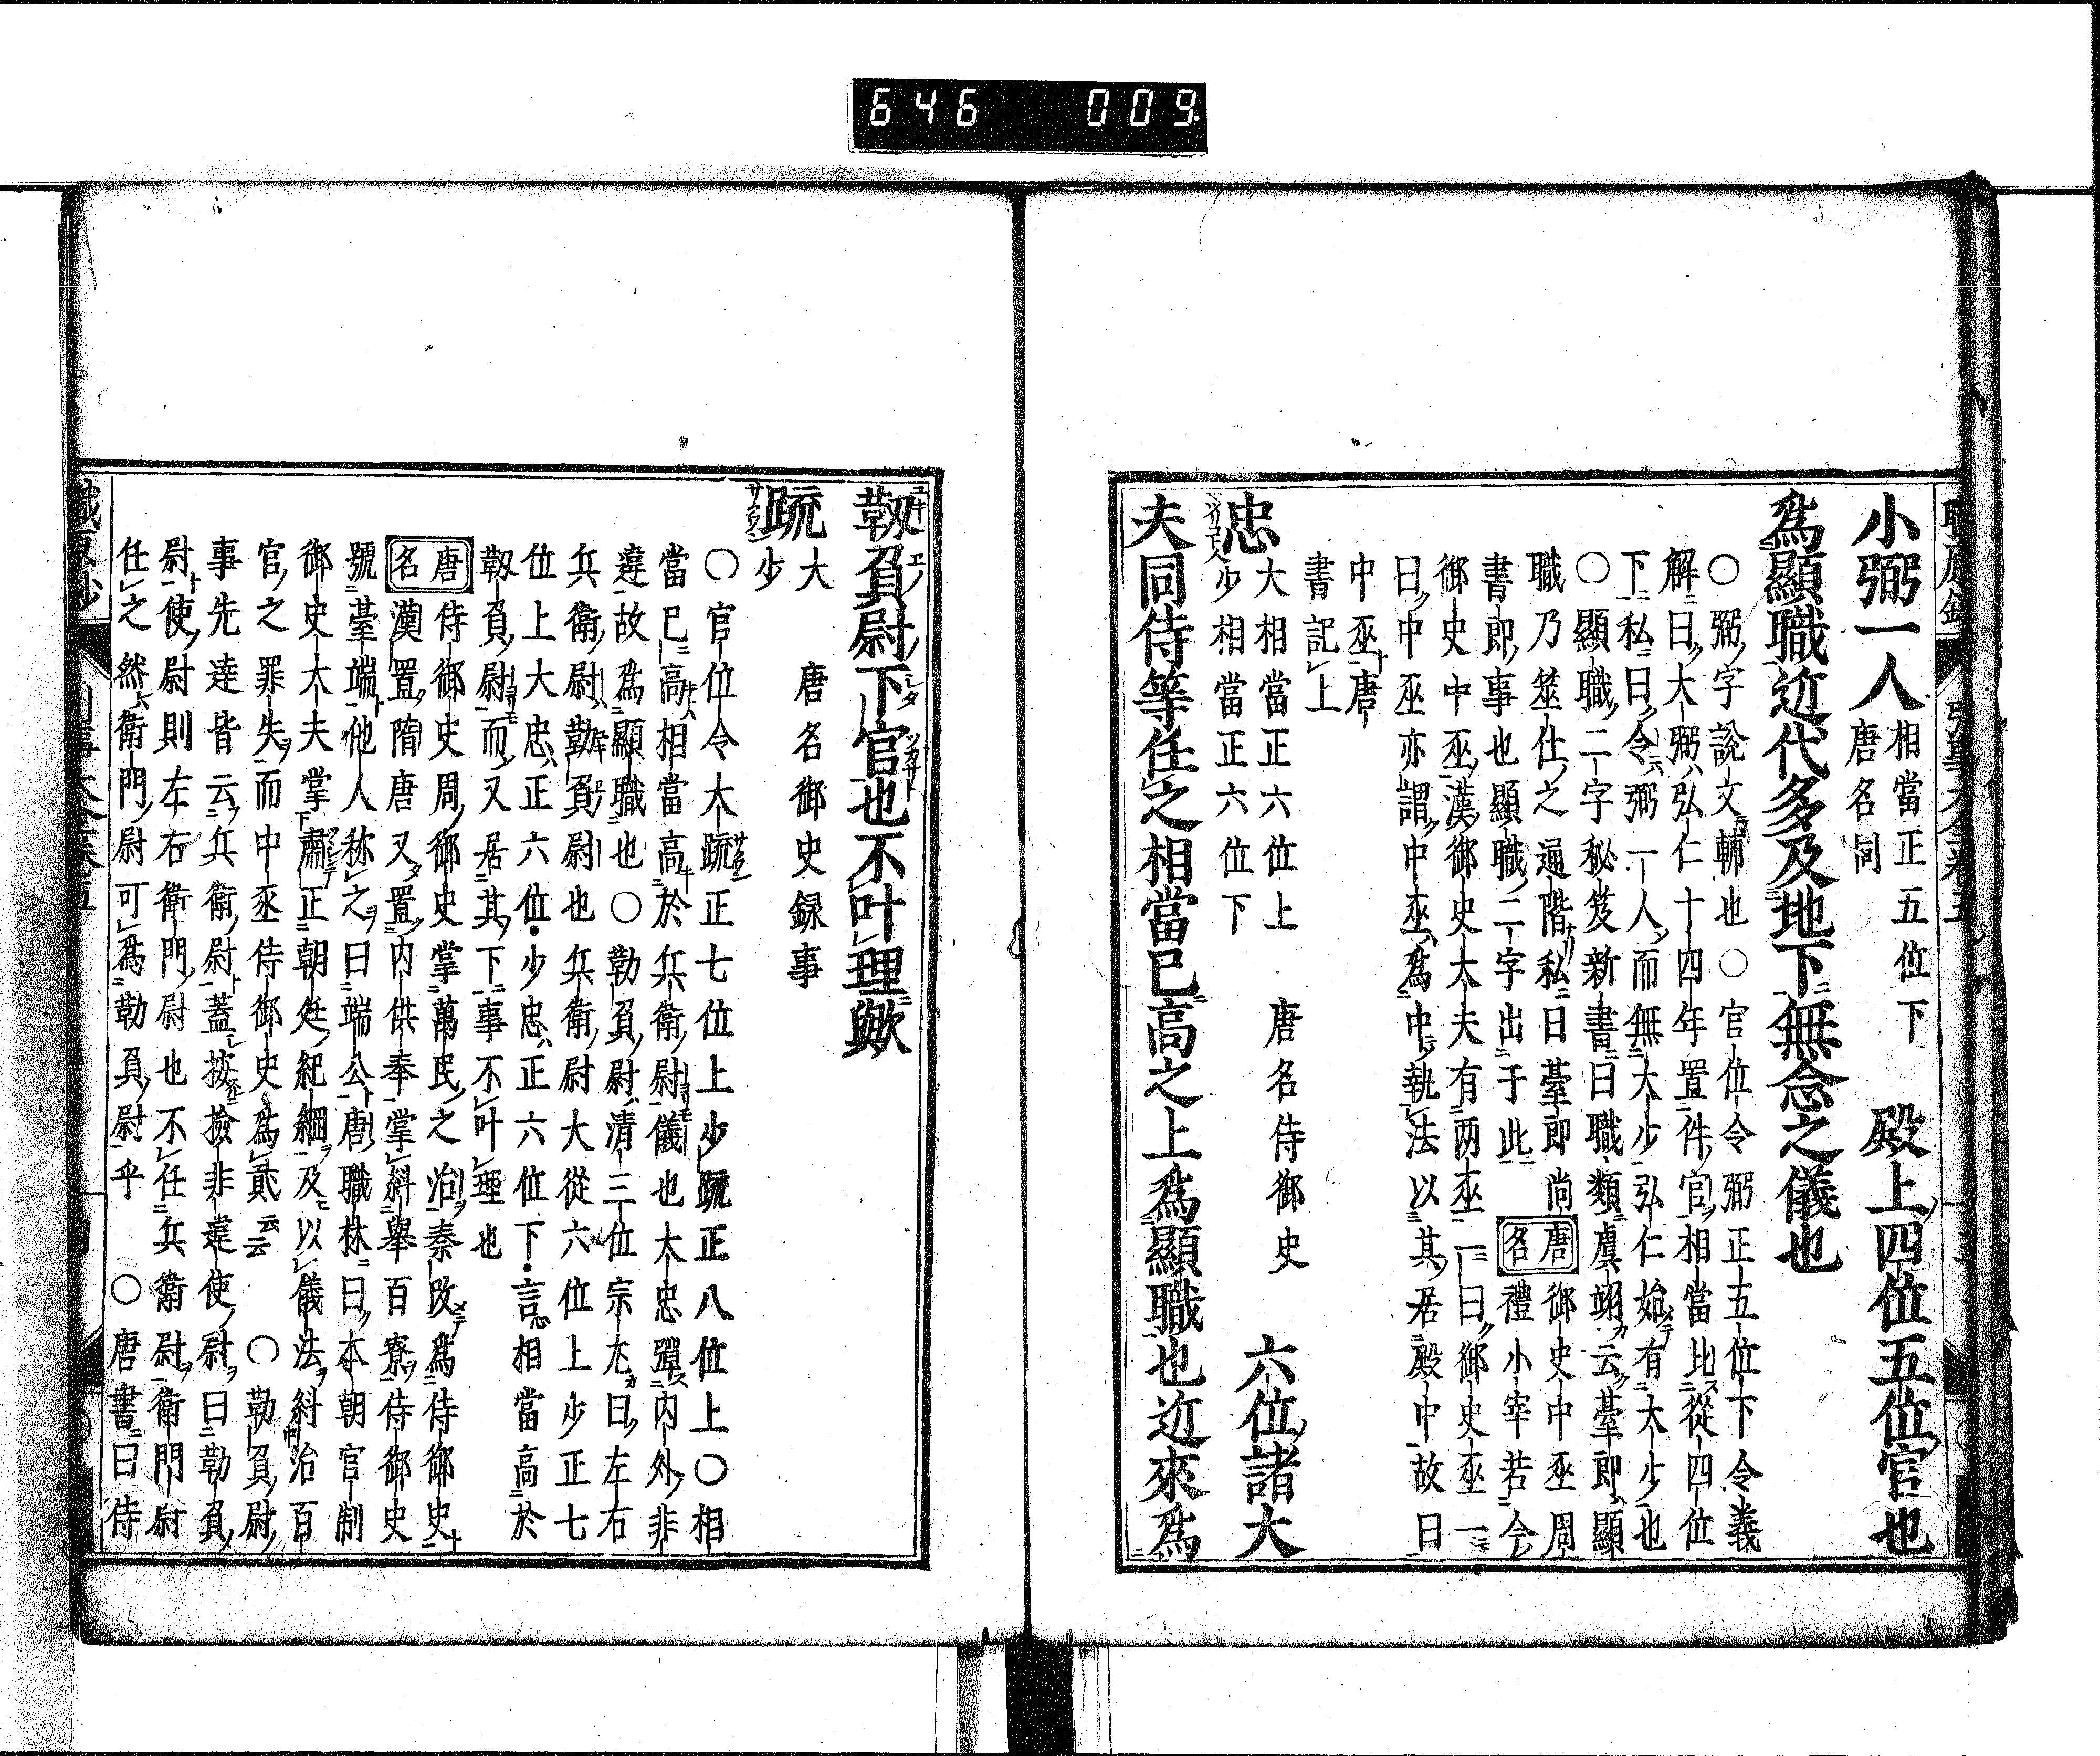 646 009
小弼一人 相當正五位下 唐名同 殿上四位五位官也
爲顯職近代多及地下無念之儀也
〇弼字說文輔也〇官位令弼正五位下令義
解曰大弼弘仁十四年置件官相當比從四位
下私曰令弼一人而無大少弘仁始有大少也
〇顯職二字秘笈新書曰職類虞翊云臺郎顯
職乃筮仕之通階私曰臺郎尚
書郎事也顯職二字出于此
唐名 御史中丞周
禮小宰若今
御史中丞漢御史大夫有两丞一曰御史丞一
曰中丞亦謂中丞爲中執法以其居殿中故曰
中丞唐
書記上
忠 大相當正六位上 少相當正六位下 唐名侍御史 六位諸大
夫同侍等任之相當已高之上爲顯職也近來爲
靱負尉下官也不叶理歟
疏 大少 唐名御史録事
〇官位令大疏正七位上少疏正八位上〇相
當已高相當高於兵衛尉儀也大忠彈内外非
違故爲顯職也〇靱負尉清三位宗尤曰左右
兵衛尉靱負尉也兵衛尉大從六位上少正七
位上大忠正六位少忠正六位下言相當高於
靱負尉而又居其下事不叶理也
唐名 侍御史周御史掌萬民之治秦改爲侍御史
漢置隋唐又置内供奉掌糾舉百寮侍御史
號臺端他人称之曰端公唐職林曰本朝官制
御史大夫掌肅正朝廷紀綱及以儀法糾治百
官之罪失而中丞侍御史爲貳云云〇靱負尉
事先達皆云兵衛尉蓋按撿非違使尉曰靱負
尉使尉則左右衛門尉也不任兵衛尉衛門尉
任之然衛門尉可爲靱負尉乎〇唐書曰侍